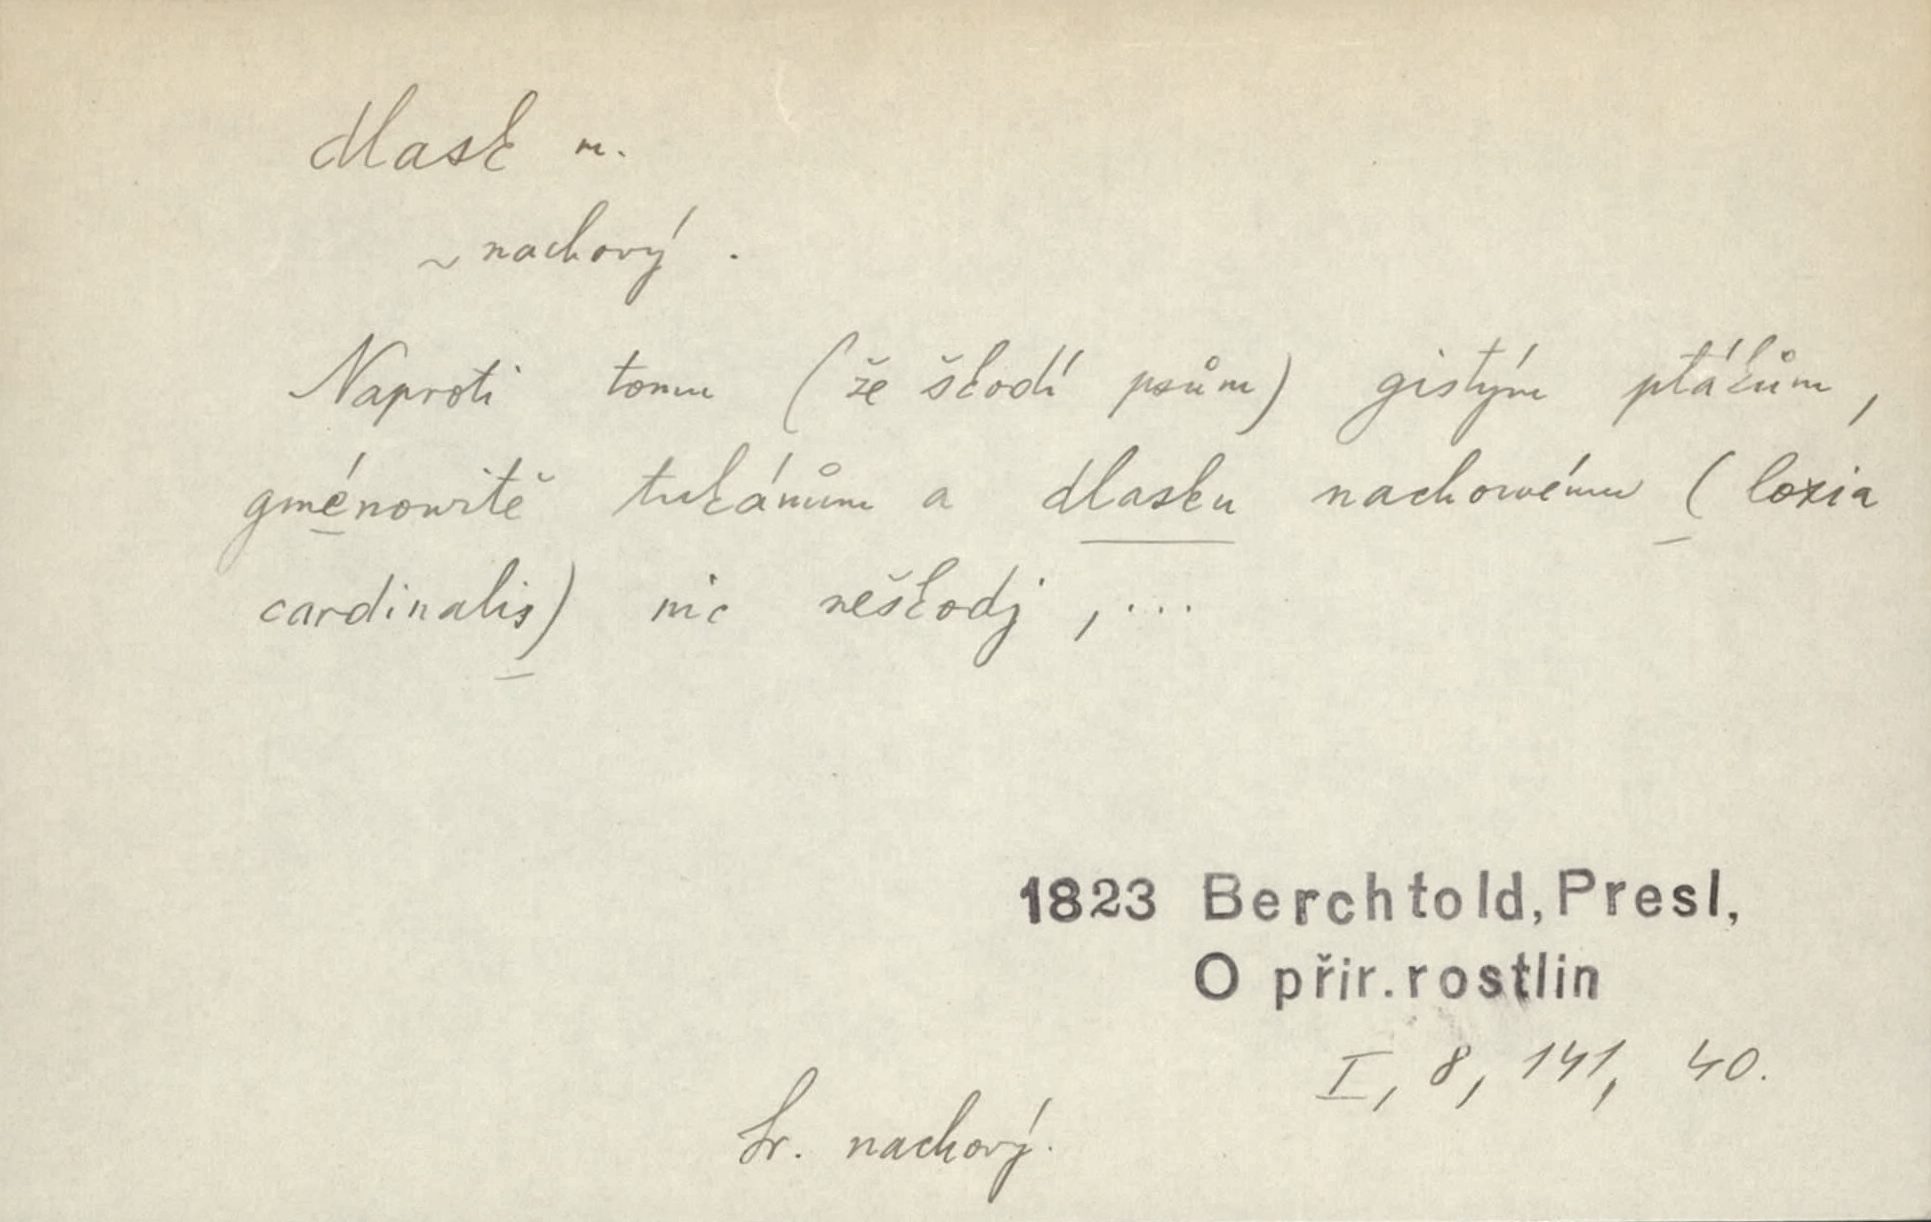 dlask m.
~ nachový.
Naproti tomu (že škodí psům) gistým ptákům,
gménowitě tukánům a dlasku nachowému (loxia
cardinalis) nic neškodj,...
1823 Berchtold, Presl,
O přir. rostlin
I, 8, 141, 40.
Sr. nachový.